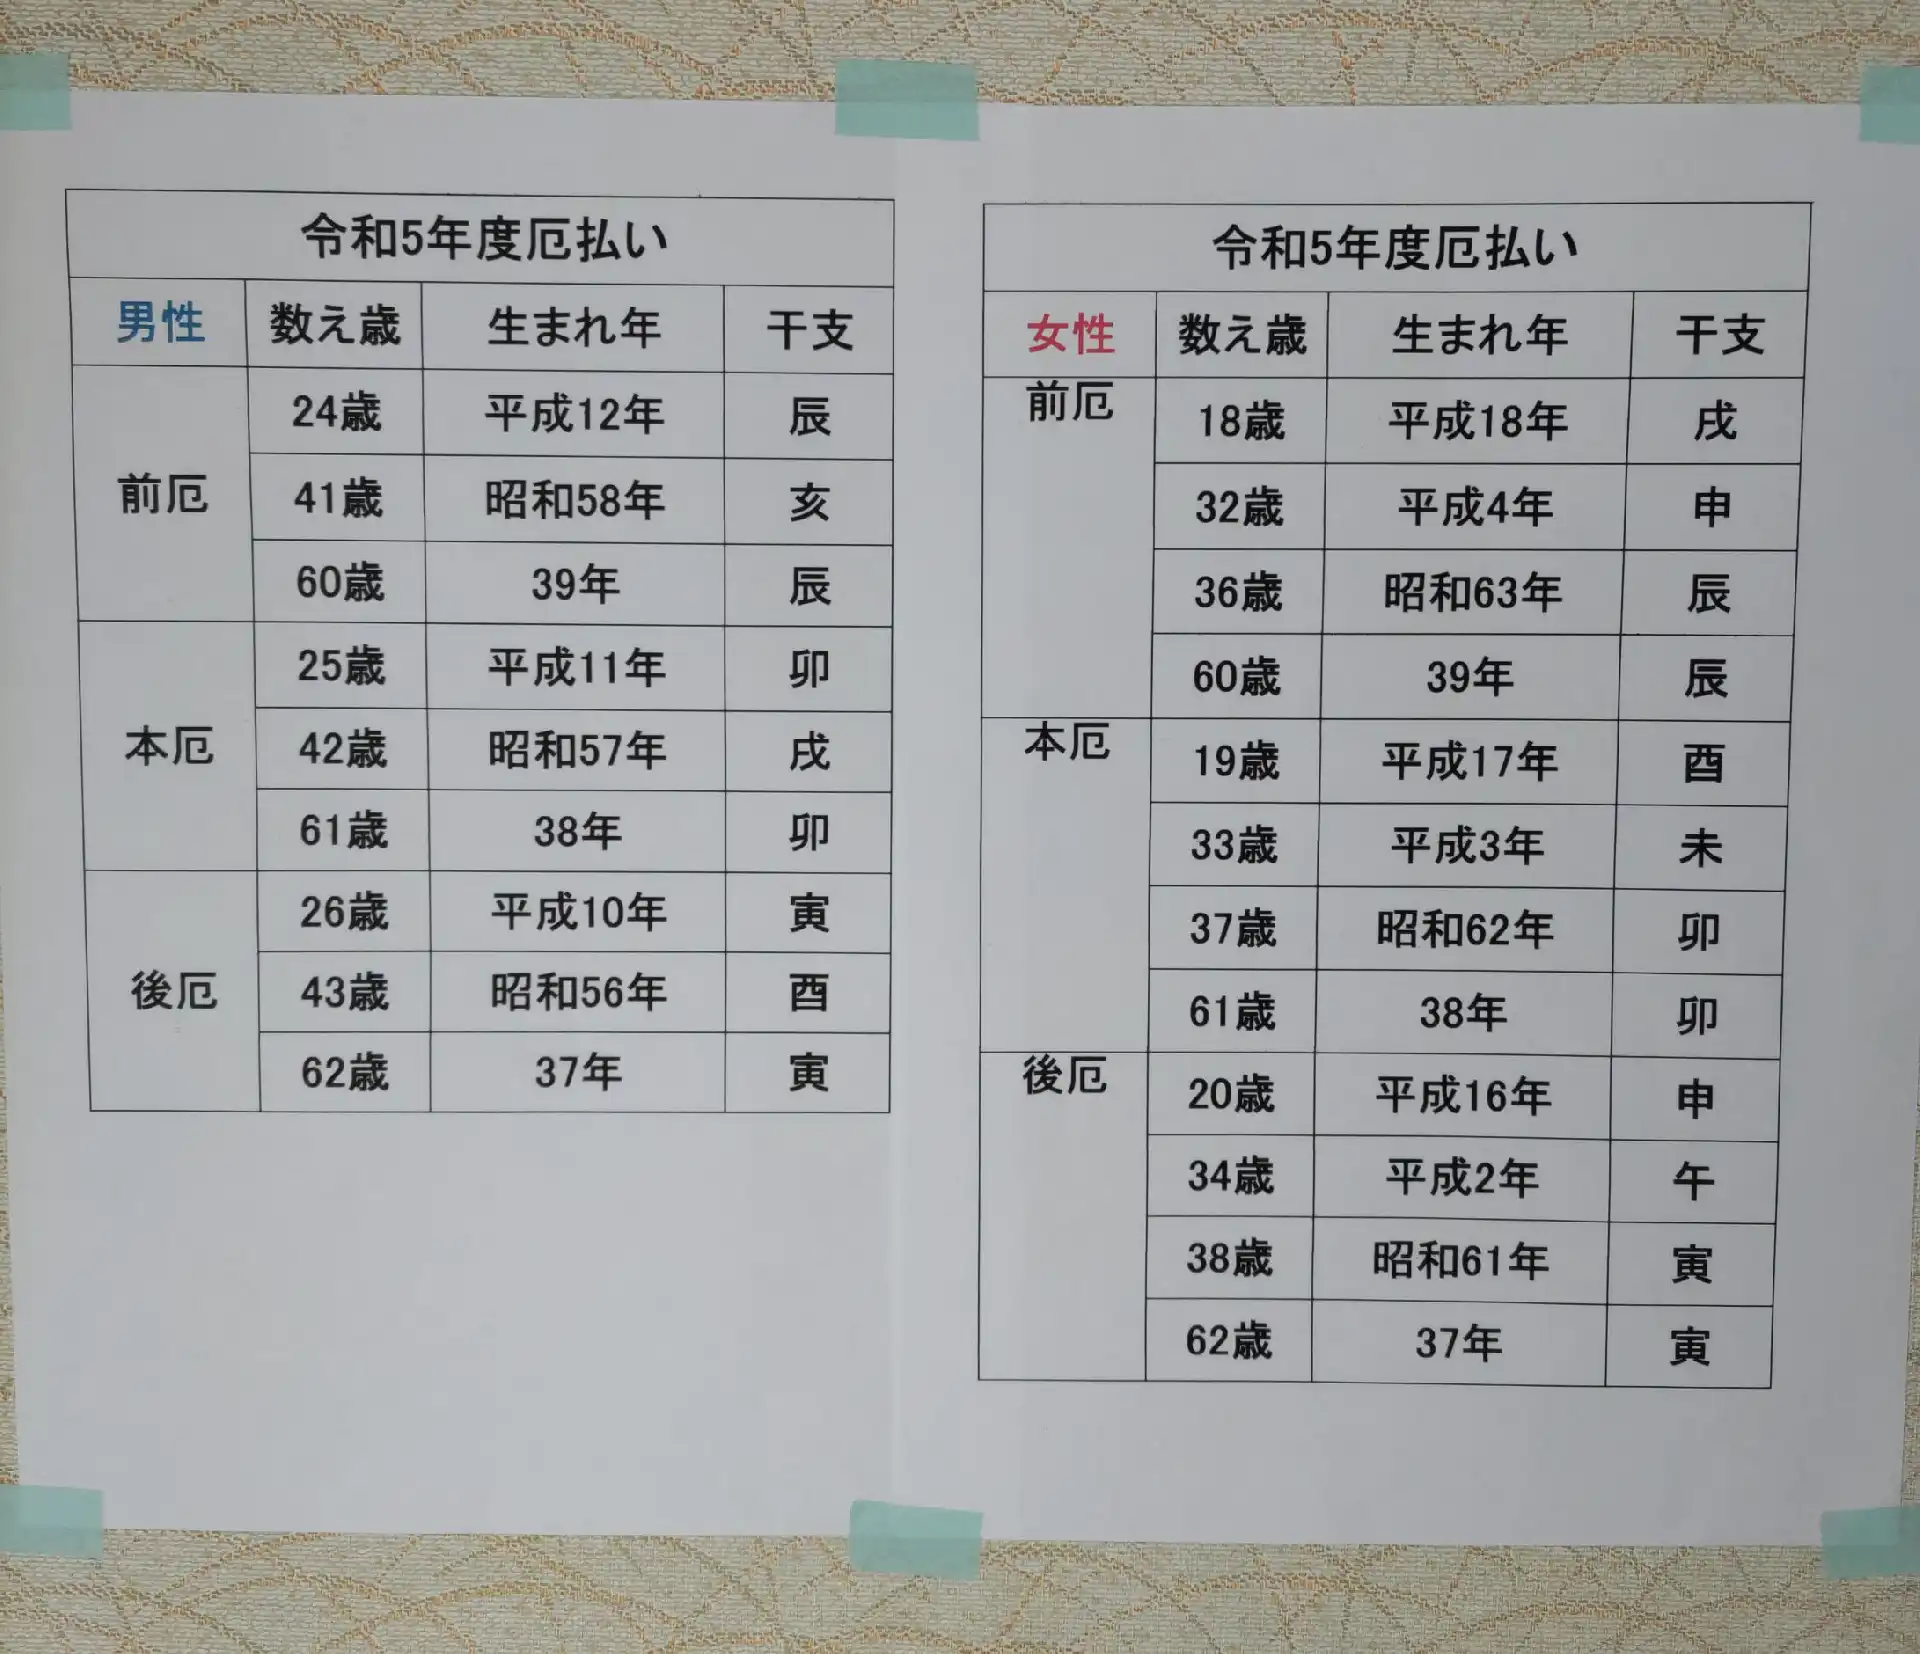 令和5年度厄払い
男性 数え歳 生まれ年 干支
前厄 24歳 平成12年 辰
41歳 昭和58年 亥
60歳 39年 辰
本厄 25歳 平成11年 卯
42歳 昭和57年 戌
61歳 38年 卯
後厄 26歳 平成10年 寅
43歳 昭和56年 酉
62歳 37年 寅
令和5年度厄払い
女性 数え歳 生まれ年 干支
前厄 18歳 平成18年 戌
32歳 平成4年 申
36歳 昭和63年 辰
60歳 39年 辰
本厄 19歳 平成17年 酉
33歳 平成3年 未
37歳 昭和62年 卯
61歳 38年 卯
後厄 20歳 平成16年 申
34歳 平成2年 午
38歳 昭和61年 寅
62歳 37年 寅